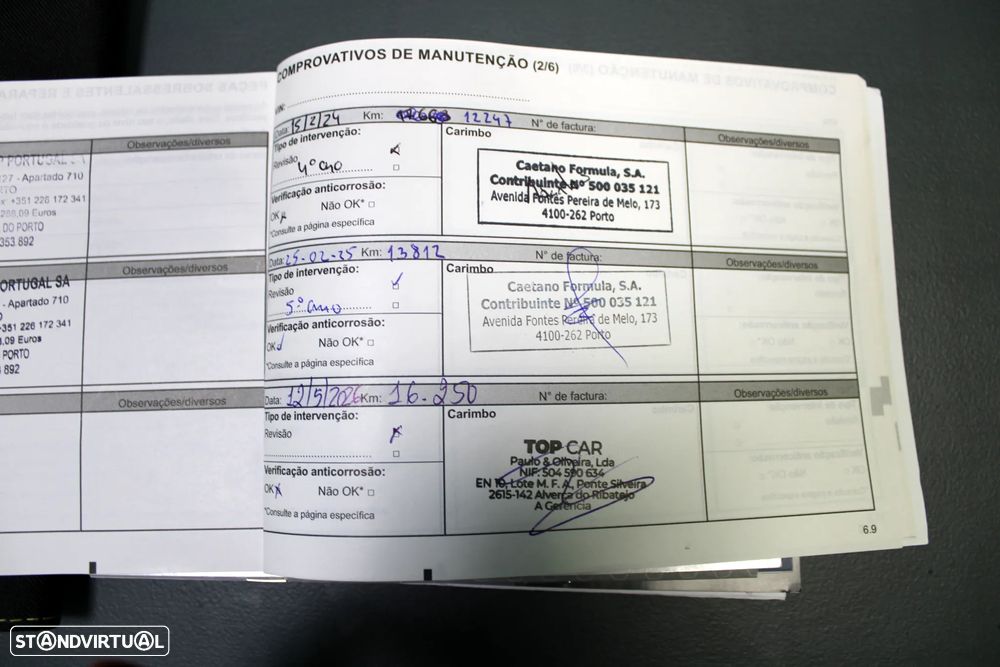 COMPROVATIVOS DE MANUTENÇÃO (2/6)
VIN:
Data: 15/2/24 Km: 12247 N° de factura: Observações/diversos
Tipo de intervenção:
Revisão
4º ano
Verificação anticorrosão:
OK Não OK*
*Consulte a página específica
Carimbo
Caetano Formula, S.A.
Contribuinte Nº 500 035 121
Avenida Fontes Pereira de Melo, 173
4100-262 Porto
Data: 25-02-25 Km: 13812 N° de factura: Observações/diversos
Tipo de intervenção:
Revisão
5º ano
Verificação anticorrosão:
OK Não OK*
*Consulte a página específica
Carimbo
Caetano Formula, S.A.
Contribuinte Nº 500 035 121
Avenida Fontes Pereira de Melo, 173
4100-262 Porto
Data: 12/5/2026 Km: 16.250 N° de factura: Observações/diversos
Tipo de intervenção:
Revisão
Verificação anticorrosão:
OK Não OK*
*Consulte a página específica
Carimbo
TOP CAR
Paulo & Oliveira, Lda
NIF: 504 590 634
EN 10, Lote M. F. A., Ponte Silveira
2615-142 Alverca do Ribatejo
A Gerência
6.9
Observações/diversos
PORTUGAL
127 - Apartado 710
+351 226 172 341
288,09 Euros
DO PORTO
353 892
Observações/diversos
PORTUGAL SA
- Apartado 710
+351 226 172 341
,09 Euros
PORTO
892
Observações/diversos
STANDVIRTUAL